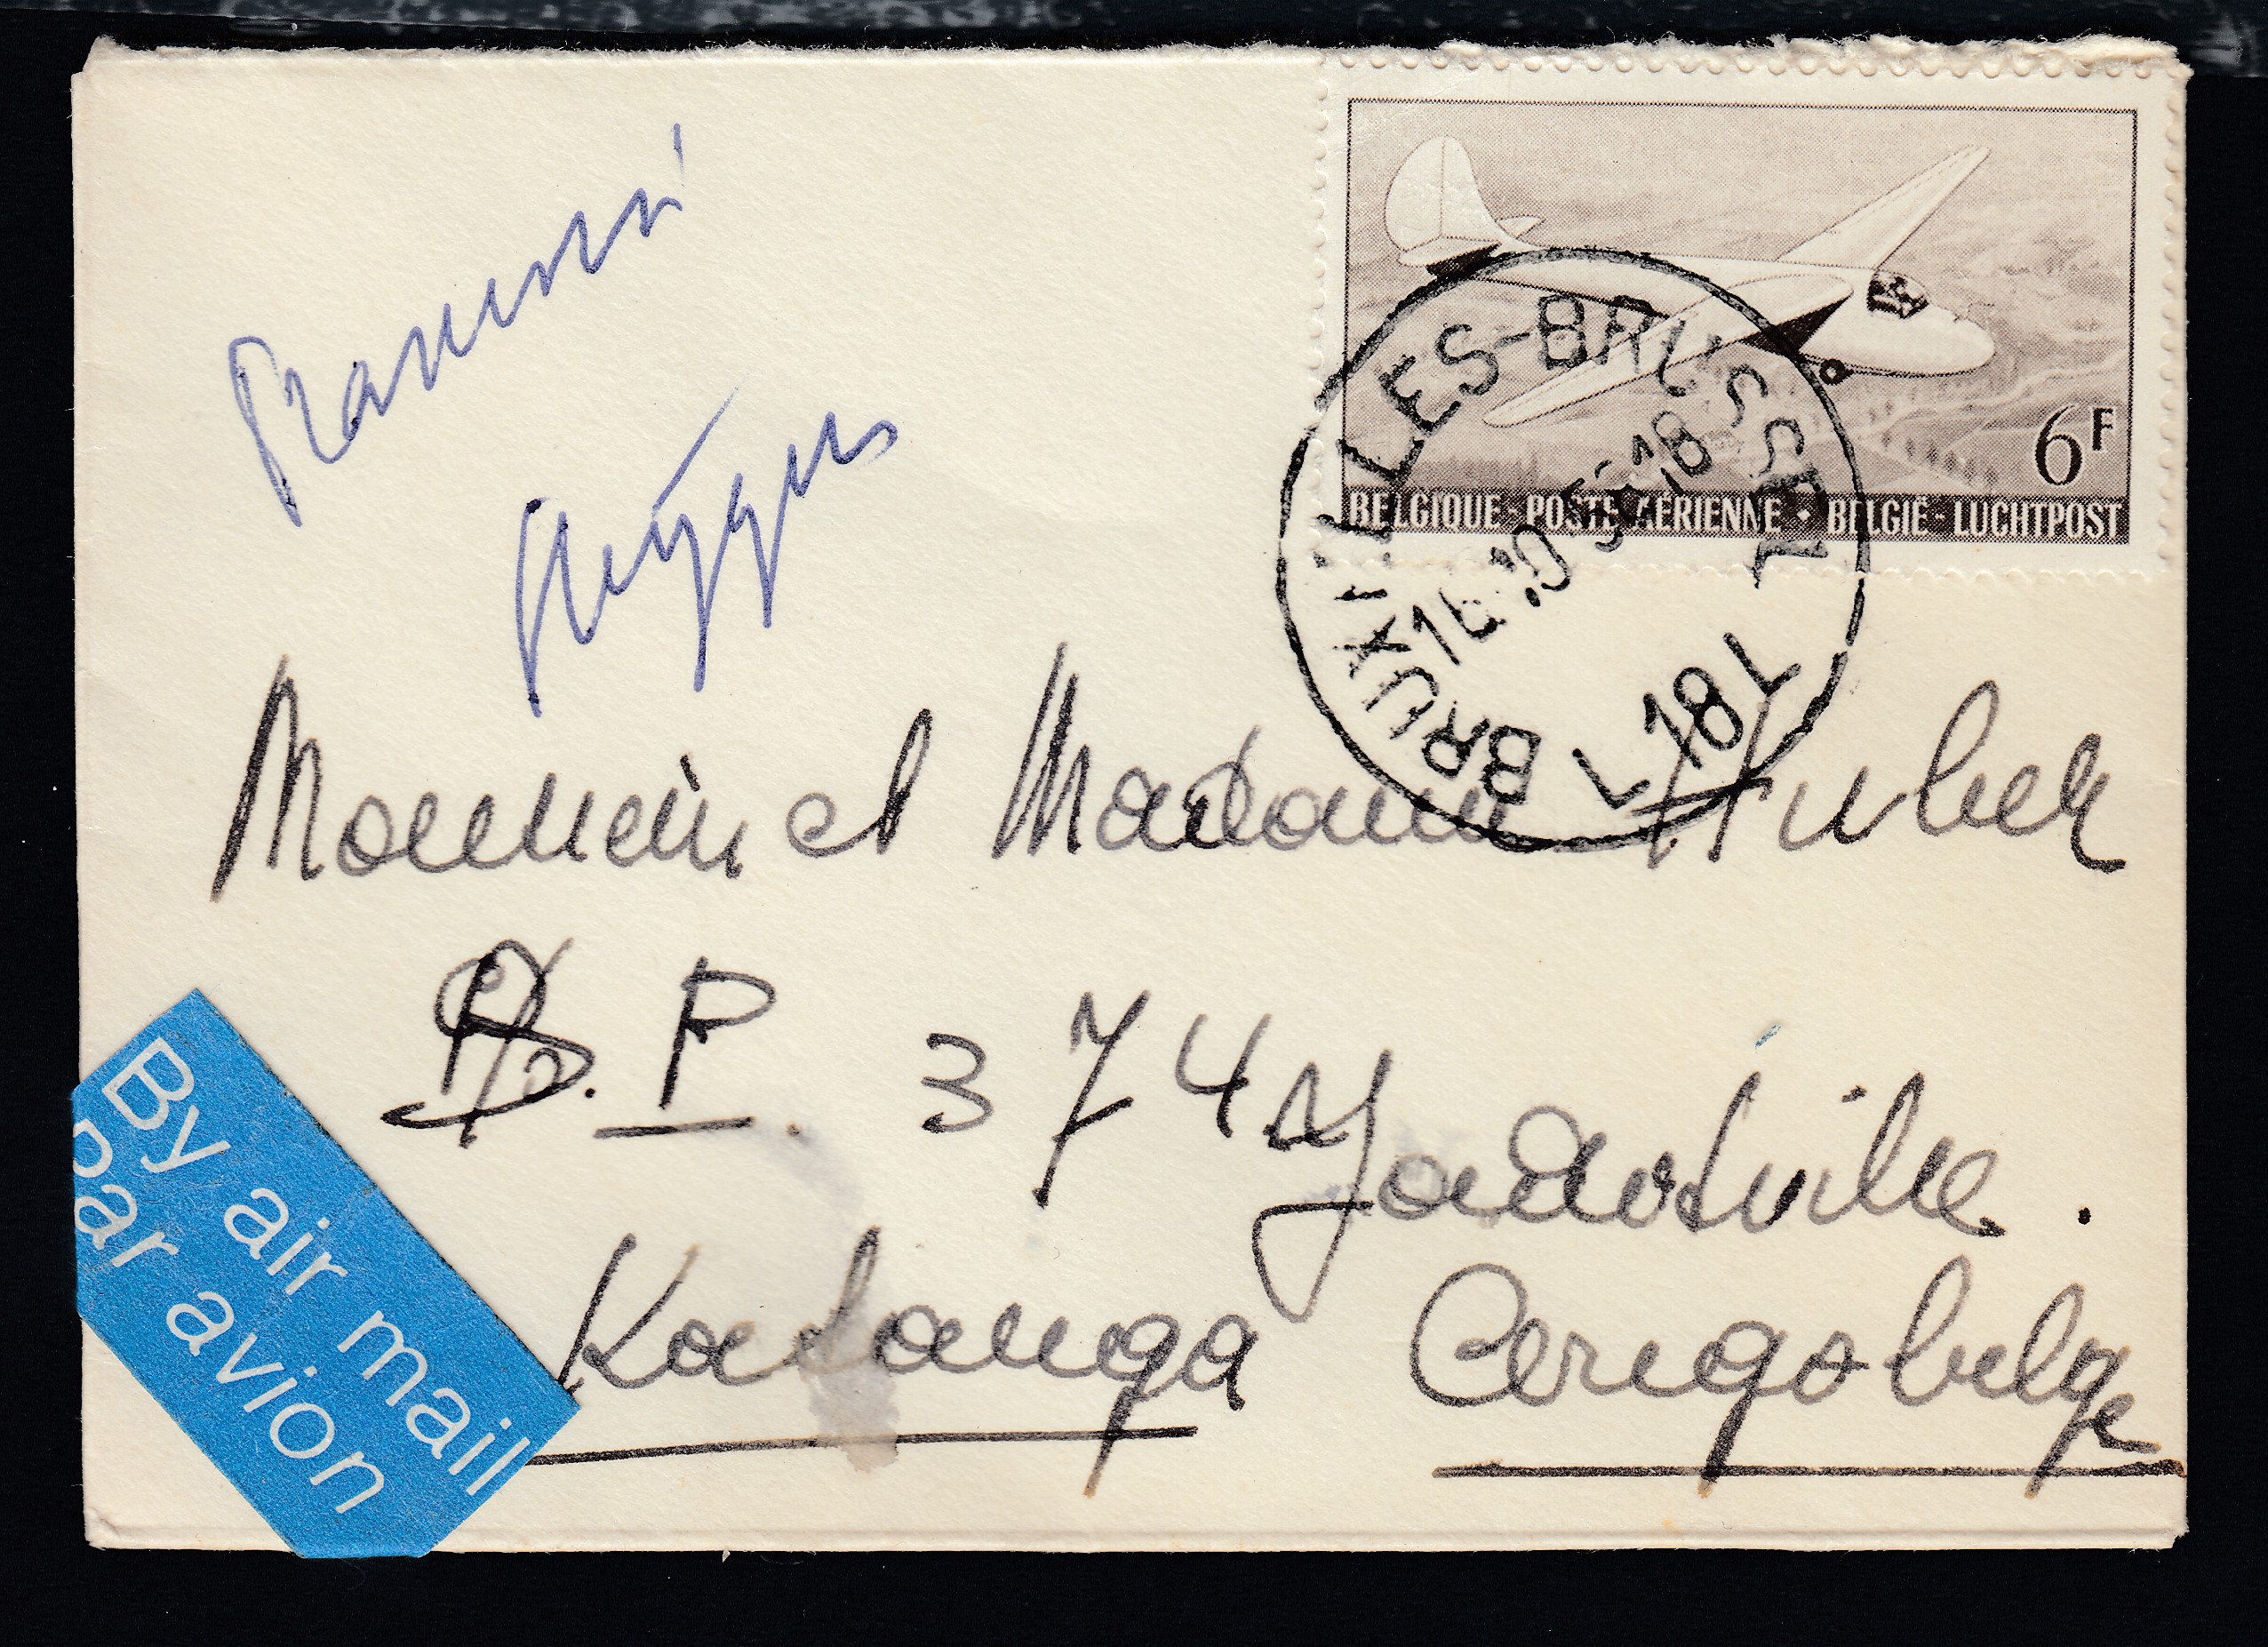 6F
BELGIQUE - POSTE AÉRIENNE • BELGIË - LUCHTPOST
BRUXELLES-BRUSSEL
18
B L 18 L
Monsieur et Madame Huber
B. P. 374 Jadotville.
Katanga Congo belge
By air mail
Par avion